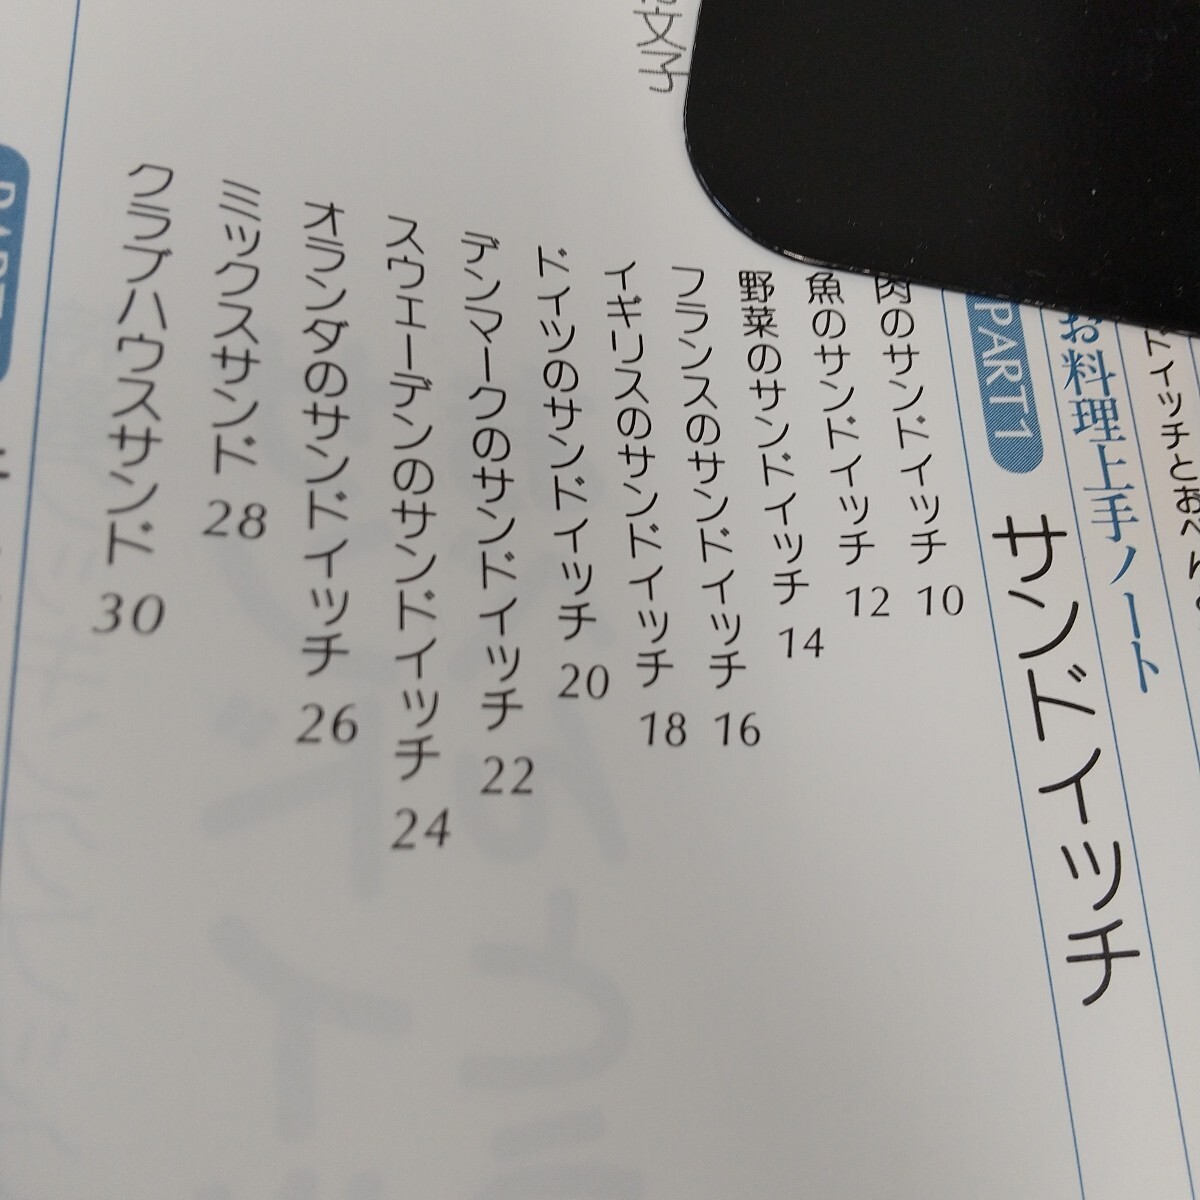 ドイッチとおべん
お料理上手ノート
PART1
サンドイッチ
肉のサンドイッチ 10
魚のサンドイッチ 12
野菜のサンドイッチ 14
フランスのサンドイッチ 16
イギリスのサンドイッチ 18
ドイツのサンドイッチ 20
デンマークのサンドイッチ 22
スウェーデンのサンドイッチ 24
オランダのサンドイッチ 26
ミックスサンド 28
クラブハウスサンド 30
文子
PART